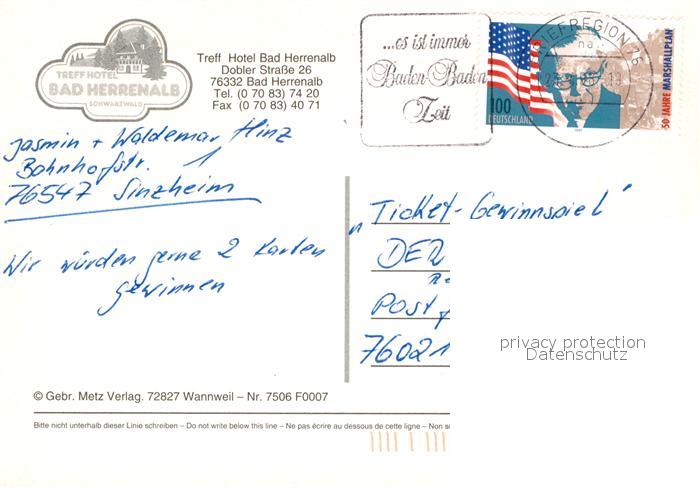 TREFF HOTEL
BAD HERRENALB
SCHWARZWALD
Treff Hotel Bad Herrenalb
Dobler Straße 26
76332 Bad Herrenalb
Tel. (0 70 83) 74 20
Fax (0 70 83) 40 71
...es ist immer
Baden-Baden
Zeit
BRIEFREGION 76
na
100
DEUTSCHLAND
50 JAHRE MARSHALLPLAN
Jasmin + Waldemar Hinz
Bahnhofstr. 1
76547 Sinzheim
Wir würden gerne 2 Karten
gewinnen
"Ticket-Gewinnspiel"
DER
Postf
76021
privacy protection
Datenschutz
© Gebr. Metz Verlag. 72827 Wannweil – Nr. 7506 F0007
Bitte nicht unterhalb dieser Linie schreiben – Do not write below this line – Ne pas écrire au dessous de cette ligne – Non s